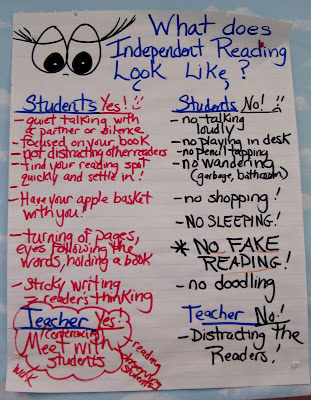 What does
Independent Reading
Look Like?
Students Yes!
- quiet talking with
a partner or silence
- focused on your book
- not distracting other readers
- find your reading spot
quickly and settle in!
- Have your apple basket
with you!
- turning of pages,
eyes following the
words, holding a book
- Sticky writing
- readers thinking
Teacher Yes!
(conferencing)
Meet with
Students
work
reading
observing
students
Students No!
- no talking
loudly
- no playing in desk
- no pencil tapping
- no wandering
(garbage, bathroom)
- no shopping!
- NO SLEEPING!
* NO FAKE
READING!
- no doodling
Teacher No!
- Distracting the
Readers!